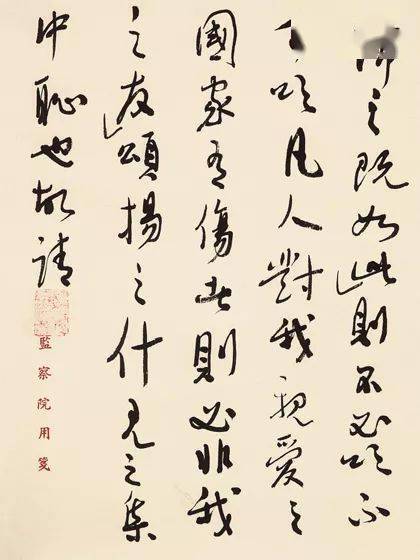 之既如此則不必吹不
吹凡人對我親愛之
國家有傷者則必非我
之友頌揚之什見之集
中恥也故請
監察院用箋